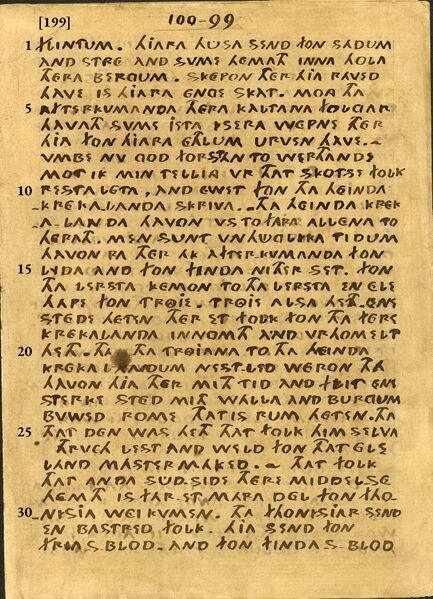 [199] 100-99
1 KINTUM. HIARA HUSA SEND FON SLADUM
AND STRE AND SUME HEMATH INNA HOLA
THERA BERGUM. SKEPON THER HIA RAVED
HAVE IS HIARA ENGE SKAT. MONG THA
5 AFTERKUMANDA THERA KALTANA FOLGAR
HAVATH SUME IETA YSERA WEPNE THER
HIA FON HIARA ETHLUM URVEN HAVE.-
VMBE NV GOD FORSTAN TO WERTHANDE
MOT IK MIN TELLING VR THAT SKOTSE FOLK
10 RESTA LETA, AND EWET FON THA HEINDA
KREKALANDA SKRIVA.- THA HEINDA KREK
A-LANDA HAVON VS TO FARA ALLENA TO
HERATH. MEN SUNT VNHUGLIKA TIDUM
HAVON RA THER AK AFTERKVMANDA FON
15 LYDA AND FON FINDA NITHER SET. FON
THA LERSTA KEMON TO THA LERSTA EN ELE
HAPE FON TROIE. TROIE ALSA HETH ENE
STEDE HETEN THER ET FOLK FON THA FERE
KREKALANDA INNOMTH AND VRHOMELT
20 HETH. THA THA TROIANA TO THA HEINDA
KREKALANDUM NESTLED WERON THA
HAVON HIA THER MITH TID AND FLIT ENE
STERKE STED MITH WALLA AND BURGUM
BUWED ROME THAT IS RUM HETEN. THA
25 THAT DEN WAS HETH THAT FOLK HIM SELVA
THRVCH LEST AND WELD FON THAT ELE
LAND MASTER MAKED.- THAT FOLK
THAT ANDA SUDSIDE THERE MIDDELSE
HEMTH IS FAR ET MARA DEL FON FHO-
30 NISIA WEI KUMEN. THA FHONISIAR SEND
EN BASTRED FOLK. HIA SEND FON
FRYAS BLOD. AND FON FINDAS BLOD